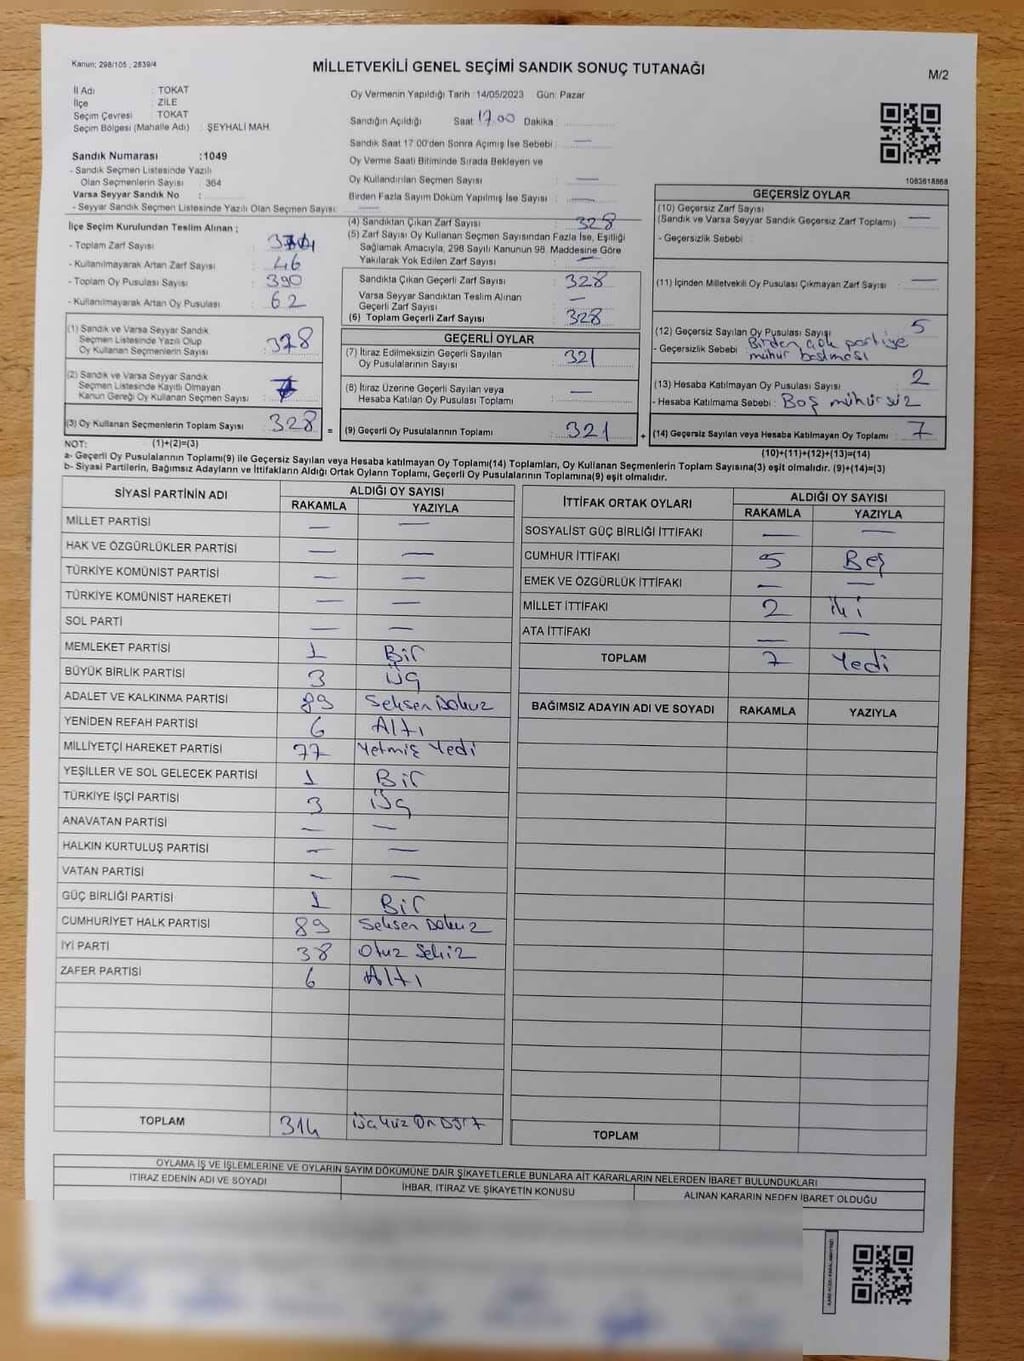 Kanun; 298/105 , 2839/4
MİLLETVEKİLİ GENEL SEÇİMİ SANDIK SONUÇ TUTANAĞI
M/2
İl Adı : TOKAT
İlçe : ZİLE
Seçim Çevresi : TOKAT
Seçim Bölgesi (Mahalle Adı) : ŞEYHALİ MAH.
Sandık Numarası :1049
- Sandık Seçmen Listesinde Yazılı
Olan Seçmenlerin Sayısı : 364
Varsa Seyyar Sandık No :
- Seyyar Sandık Seçmen Listesinde Yazılı Olan Seçmen Sayısı: —
Oy Vermenin Yapıldığı Tarih :14/05/2023 Gün: Pazar
Sandığın Açıldığı Saat 17.00 Dakika :
Sandık Saat 17:00'den Sonra Açımış İse Sebebi : —
Oy Verme Saati Bitiminde Sırada Bekleyen ve
Oy Kullandırılan Seçmen Sayısı : —
Birden Fazla Sayım Döküm Yapılmış İse Sayısı : —
1083618868
İlçe Seçim Kurulundan Teslim Alınan ;
- Toplam Zarf Sayısı :
- Kullanılmayarak Artan Zarf Sayısı : 46
- Toplam Oy Pusulası Sayısı : 390
- Kullanılmayarak Artan Oy Pusulası : 62
(1) Sandık ve Varsa Seyyar Sandık
Seçmen Listesinde Yazılı Olup
Oy Kullanan Seçmenlerin Sayısı :
(2) Sandık ve Varsa Seyyar Sandık
Seçmen Listesinde Kayıtlı Olmayan
Kanun Gereği Oy Kullanan Seçmen Sayısı :
(3) Oy Kullanan Seçmenlerin Toplam Sayısı : 328 =
(4) Sandıktan Çıkan Zarf Sayısı : 328
(5) Zarf Sayısı Oy Kullanan Seçmen Sayısından Fazla İse, Eşitliği
Sağlamak Amacıyla, 298 Sayılı Kanunun 98. Maddesine Göre
Yakılarak Yok Edilen Zarf Sayısı : —
Sandıkta Çıkan Geçerli Zarf Sayısı : 328
Varsa Seyyar Sandıktan Teslim Alınan
Geçerli Zarf Sayısı : —
(6) Toplam Geçerli Zarf Sayısı : 328
GEÇERLİ OYLAR
(7) İtiraz Edilmeksizin Geçerli Sayılan
Oy Pusulalarının Sayısı : 321
(8) İtiraz Üzerine Geçerli Sayılan veya
Hesaba Katılan Oy Pusulası Toplamı : —
(9) Geçerli Oy Pusulalarının Toplamı : 321 +
GEÇERSİZ OYLAR
(10) Geçersiz Zarf Sayısı : —
(Sandık ve Varsa Seyyar Sandık Geçersiz Zarf Toplamı)
- Geçersizlik Sebebi :
(11) İçinden Milletvekili Oy Pusulası Çıkmayan Zarf Sayısı : —
(12) Geçersiz Sayılan Oy Pusulası Sayışı : 5
- Geçersizlik Sebebi : Birden çok partiye
mühür basılması
(13) Hesaba Katılmayan Oy Pusulası Sayısı : 2
- Hesaba Katılmama Sebebi : Boş mühürsüz
(14) Geçersiz Sayılan veya Hesaba Katılmayan Oy Toplamı : 7
NOT: (1)+(2)=(3)
(10)+(11)+(12)+(13)=(14)
a- Geçerli Oy Pusulalarının Toplamı(9) ile Geçersiz Sayılan veya Hesaba katılmayan Oy Toplamı(14) Toplamları, Oy Kullanan Seçmenlerin Toplam Sayısına(3) eşit olmalıdır. (9)+(14)=(3)
b- Siyasi Partilerin, Bağımsız Adayların ve İttifakların Aldığı Ortak Oyların Toplamı, Geçerli Oy Pusulalarının Toplamına(9) eşit olmalıdır.
SİYASİ PARTİNİN ADI ALDIĞI OY SAYISI
RAKAMLA YAZIYLA
MİLLET PARTİSİ — —
HAK VE ÖZGÜRLÜKLER PARTİSİ — —
TÜRKİYE KOMÜNİST PARTİSİ — —
TÜRKİYE KOMÜNİST HAREKETİ — —
SOL PARTİ — —
MEMLEKET PARTİSİ 1 Bir
BÜYÜK BİRLİK PARTİSİ 3 Üç
ADALET VE KALKINMA PARTİSİ 89 Seksen Dokuz
YENİDEN REFAH PARTİSİ 6 Altı
MİLLİYETÇİ HAREKET PARTİSİ 77 Yetmiş Yedi
YEŞİLLER VE SOL GELECEK PARTİSİ 1 Bir
TÜRKİYE İŞÇİ PARTİSİ 3 Üç
ANAVATAN PARTİSİ — —
HALKIN KURTULUŞ PARTİSİ — —
VATAN PARTİSİ — —
GÜÇ BİRLİĞİ PARTİSİ 1 Bir
CUMHURİYET HALK PARTİSİ 89 Seksen Dokuz
İYİ PARTİ 38 Otuz Sekiz
ZAFER PARTİSİ 6 Altı
TOPLAM 314 Üçyüz On Dört
İTTİFAK ORTAK OYLARI ALDIĞI OY SAYISI
RAKAMLA YAZIYLA
SOSYALİST GÜÇ BİRLİĞİ İTTİFAKI — —
CUMHUR İTTİFAKI 5 Beş
EMEK VE ÖZGÜRLÜK İTTİFAKI — —
MİLLET İTTİFAKI 2 iki
ATA İTTİFAKI — —
TOPLAM 7 Yedi
BAĞIMSIZ ADAYIN ADI VE SOYADI RAKAMLA YAZIYLA
TOPLAM
OYLAMA İŞ VE İŞLEMLERİNE VE OYLARIN SAYIM DÖKÜMÜNE DAİR ŞİKAYETLERLE BUNLARA AİT KARARLARIN NELERDEN İBARET BULUNDUKLARI
İTİRAZ EDENİN ADI VE SOYADI İHBAR, İTİRAZ VE ŞİKAYETİN KONUSU ALINAN KARARIN NEDEN İBARET OLDUĞU